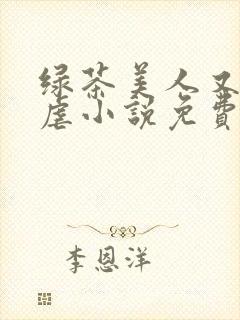 绿茶美人又
虐小說免費
李恩洋